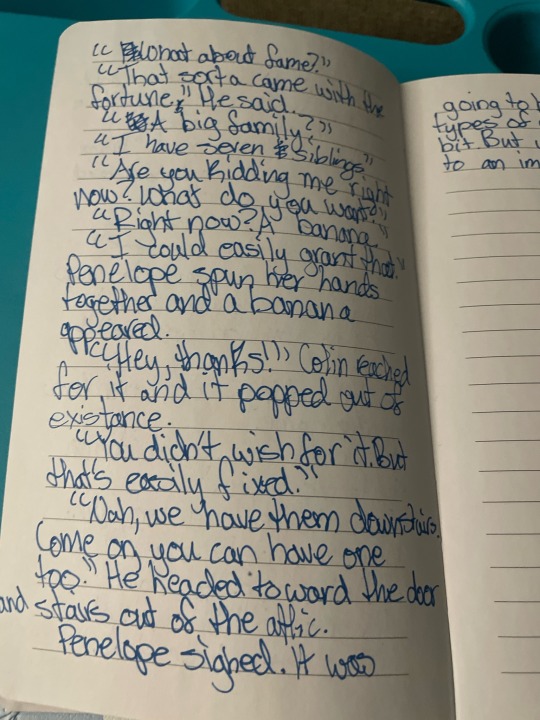 "What about fame?"
"That sorta came with the
fortune," He said.
"A big family?"
"I have seven siblings."
"Are you kidding me right
now? What do you want?"
"Right now? A banana."
"I could easily grant that."
Penelope spun her hands
together and a banana
appeared.
"Hey, thanks!" Colin reached
for it and it popped out of
existance.
"You didn't wish for it. But
that's easily fixed."
"Nah, we have them downstairs.
Come on you can have one
too." He headed toward the door
and stairs out of the attic.
Penelope signed. It was
going to
types of
bit. But
to an im